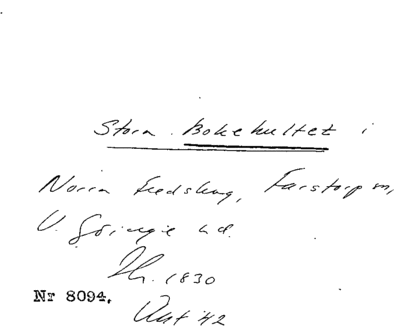 Stora Bokehultet i
Norra Fredskog, Farstorp m,
V. Göinge hd.
1830
Nr 8094.
42